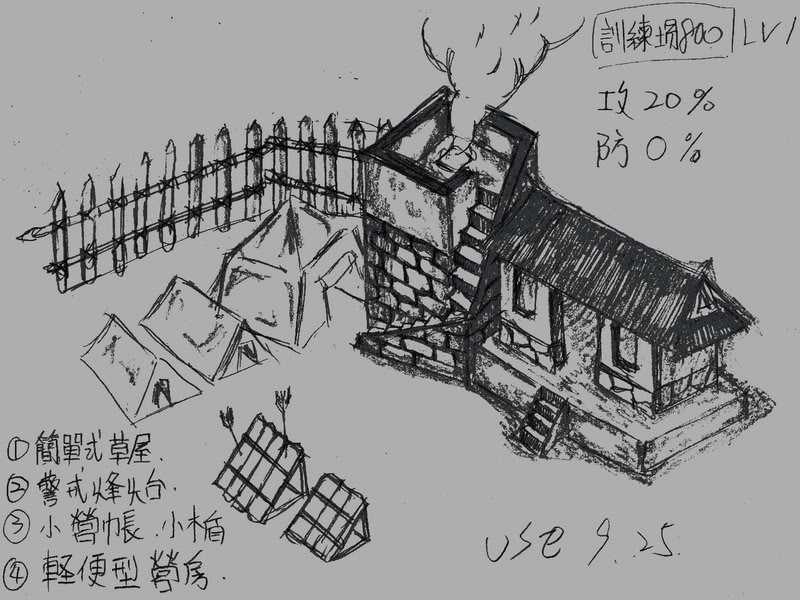 訓練場800 LV1
攻20%
防0%
①簡單式草屋.
②警戒烽火台.
③小營帳.小楯
④軽便型營房.
USE 9.25.